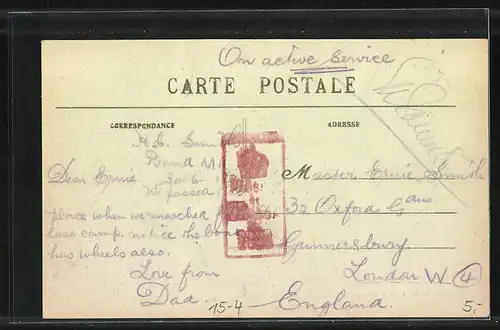 On active service
CARTE POSTALE
CORRESPONDANCE
ADRESSE
Dear Ernie 30-6-
We passed
place when we marched
camp. notice the boat
has wheels also.
Love from
Dad.
Master Ernie Smith
32 Oxford Gdns
Gunnersbury
London W 4
England.
15-4
5,-